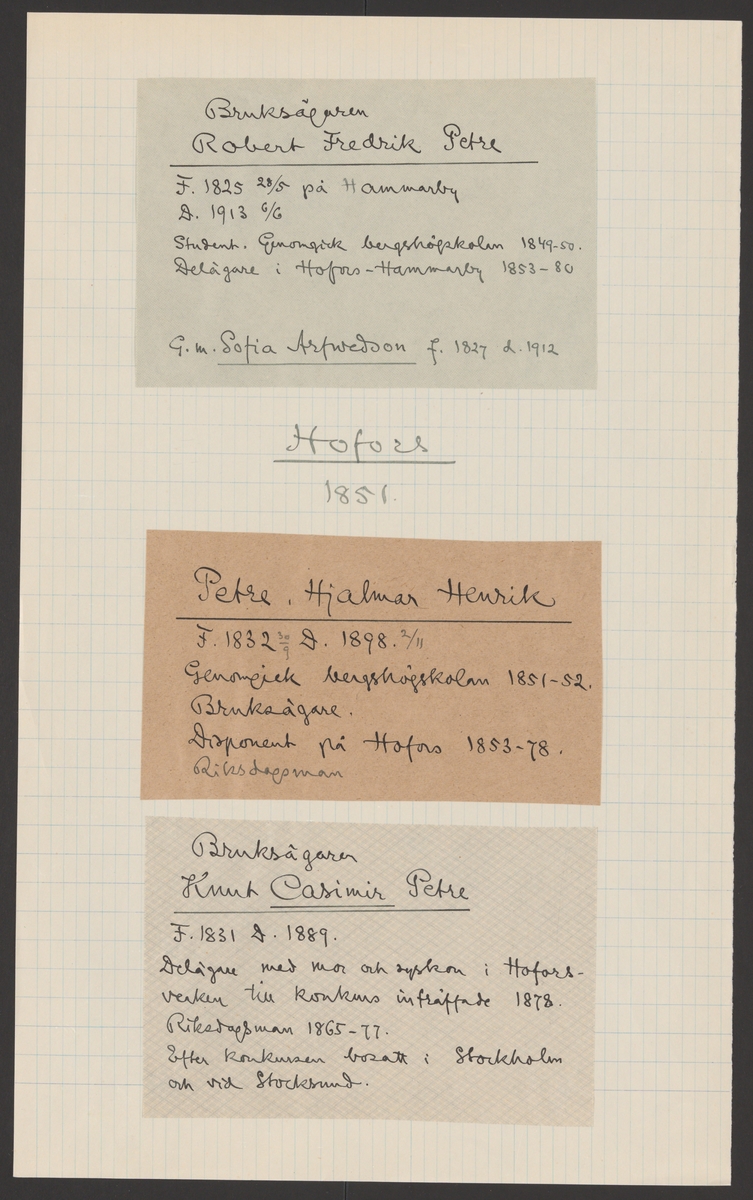 Bruksägaren
Robert Fredrik Petre
F. 1825 28/5 på Hammarby
D. 1913 6/6
Student. Genomgick bergshögskolan 1849-50.
Delägare i Hofors-Hammarby 1853-80
G. m. Sofia Arfwedson f. 1827 d. 1912
Hofors
1851.
Petre, Hjalmar Henrik
F. 1832 30/9 D. 1898. 2/11
Genomgick bergshögskolan 1851-52.
Bruksägare.
Disponent på Hofors 1853-78.
Riksdagsman
Bruksägaren
Knut Casimir Petre
F. 1831 D. 1889.
Delägare med mor och syskon i Hofors-
verken till konkurs inträffade 1878.
Riksdagsman 1865-77.
Efter konkursen bosatt i Stockholm
och vid Stocksund.